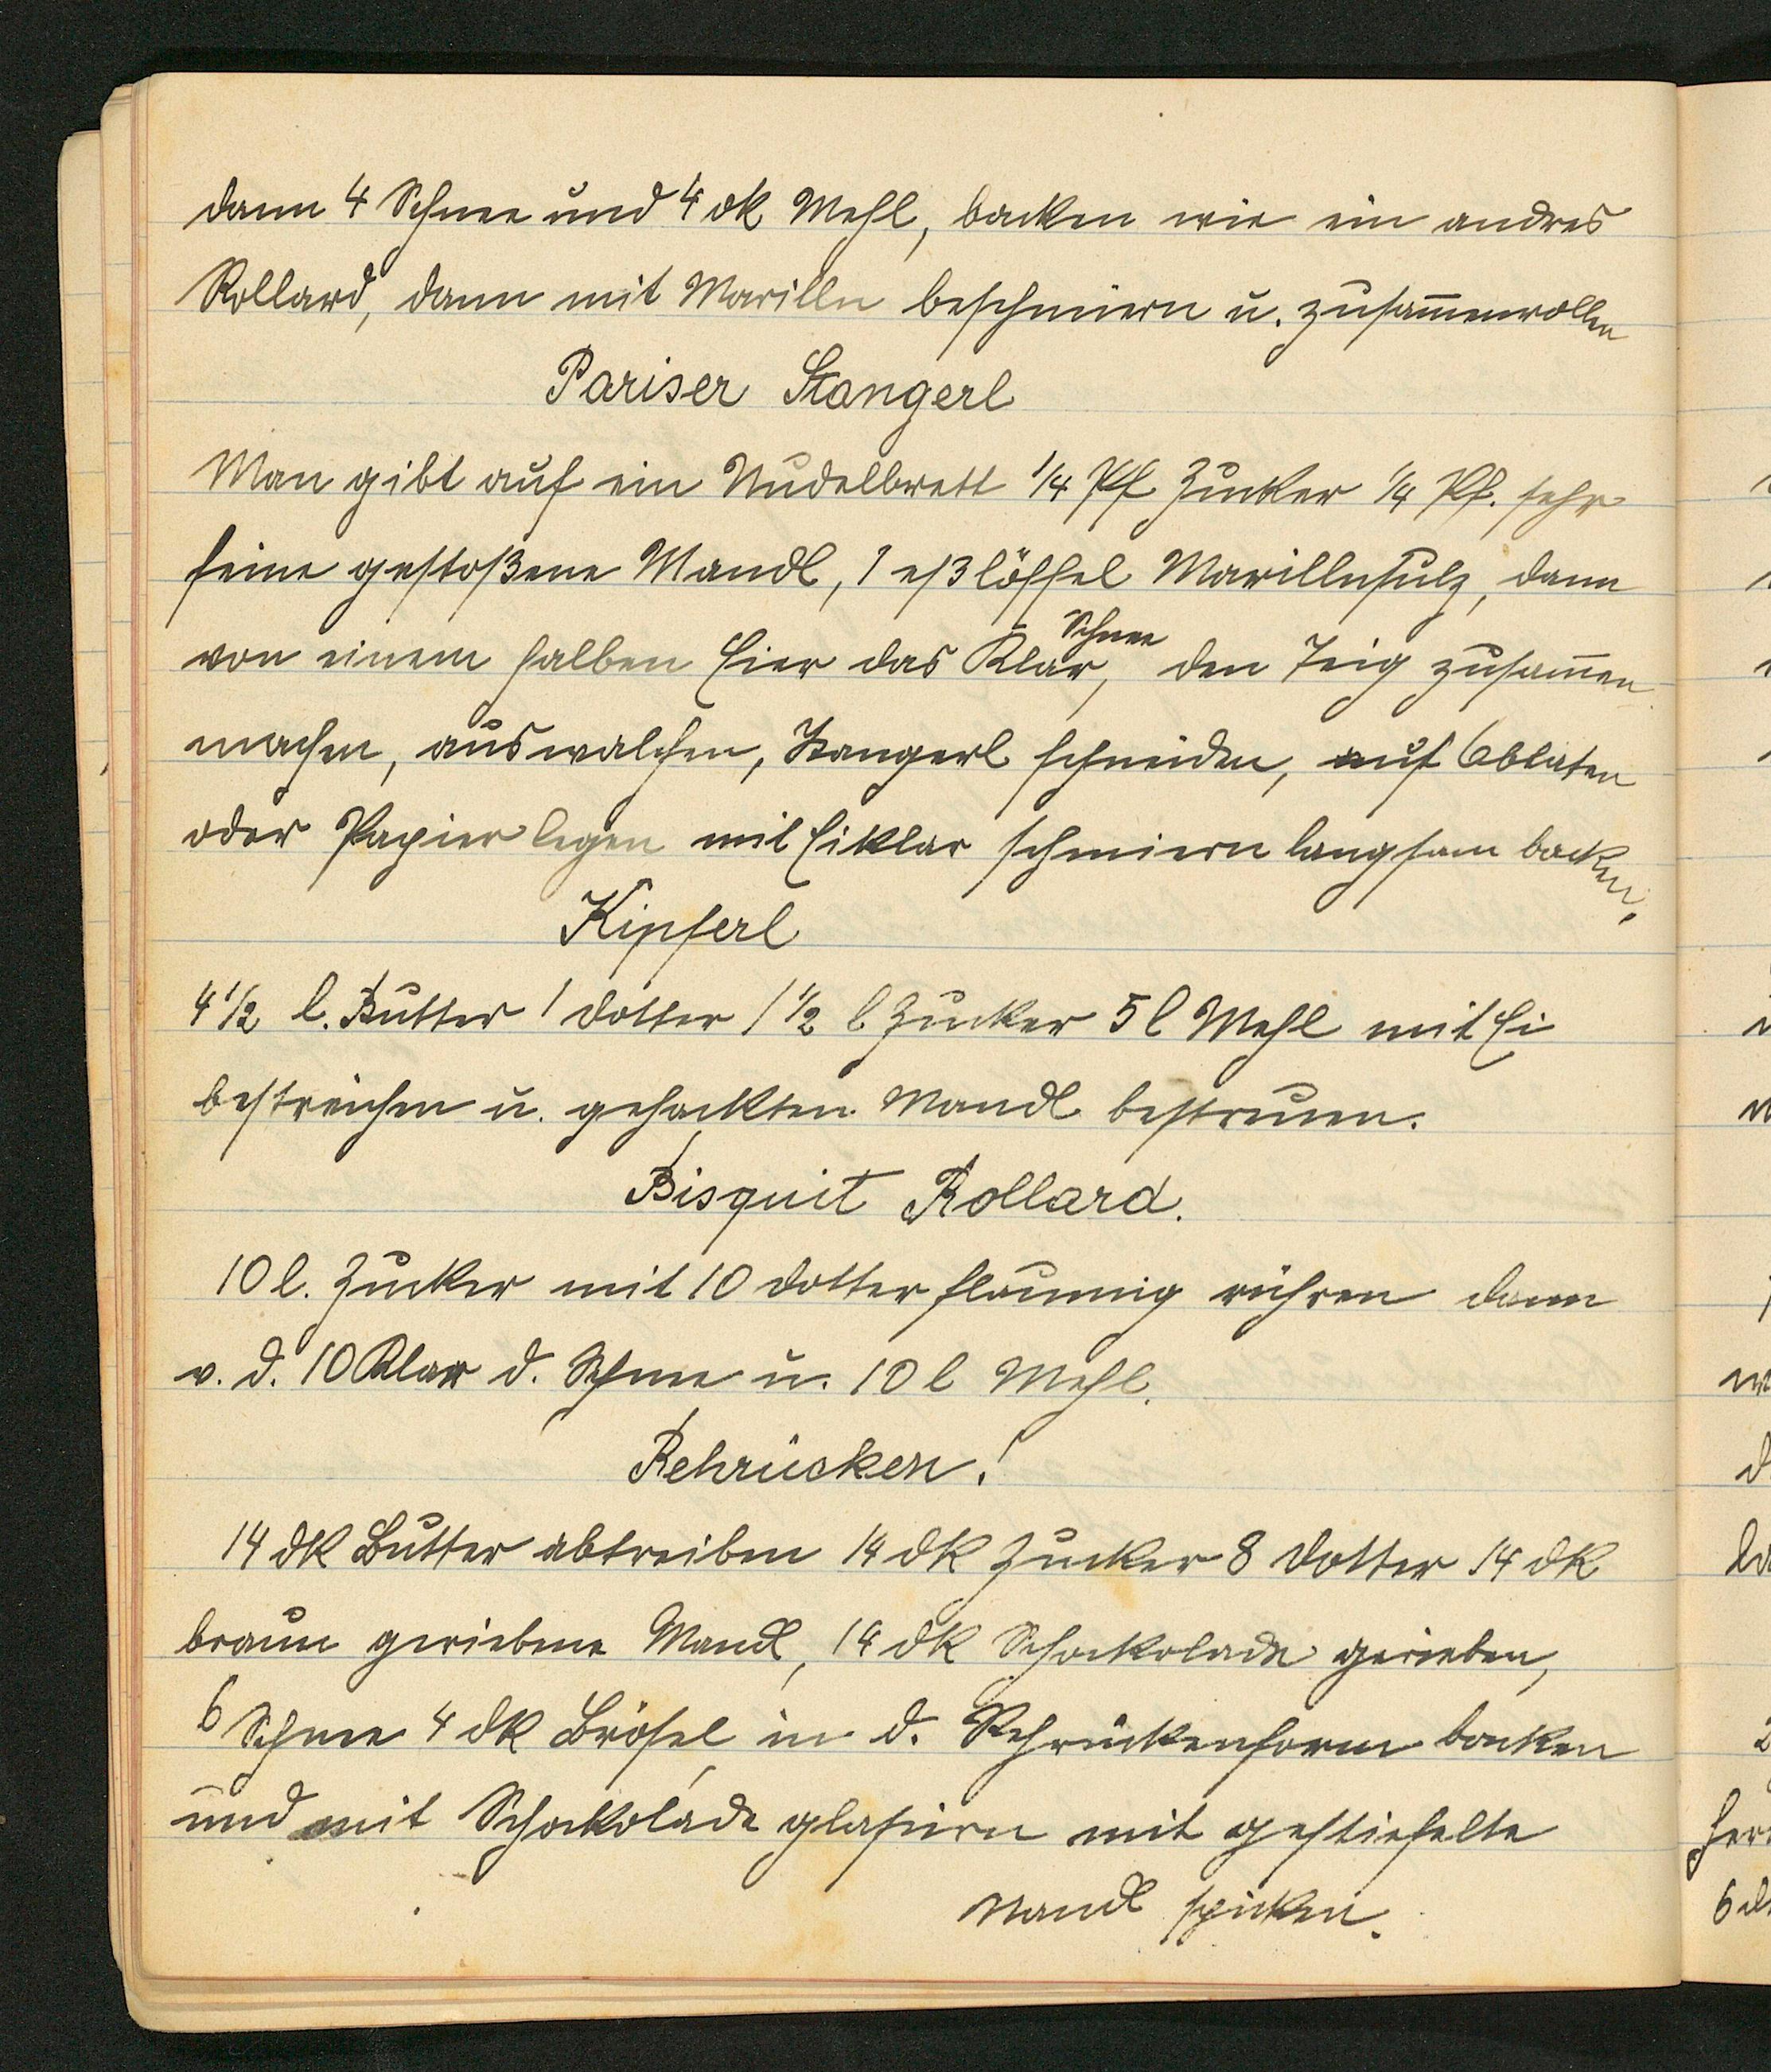 dann 4 Schnee und 4 dk Mehl, backen wie ein andres
Rollard, dann mit Marilln beschmiern u. zusam̄enrollen
Pariser Stangerl
Man gibt auf ein Nudelbrett ¼ Pf Zucker ¼ Pf. sehr
feine gestoßene Mandl, 1 eßlöffel Marillnsulz, dann
von einem halben Eier das Klar, Schnee den Teig zusam̄en
machen, auswalchen, Stangerl schneiden, auf Oblaten
oder Papier legen mit Eiklar schmiern langsam backen.
Kipferl
4 ½ l. Butter 1 Dotter 1 ½ l Zucker 5 l Mehl mit Ei
bestreichen u. gehackten Mandl bestreuen.
Bisquit Rollard.
10 l. Zucker mit 10 Dotter flaumig rühren dann
v. d. 10 Klar d. Schnee u. 10 l Mehl.
Rehrücken!
14 dk Butter abtreiben 14 dk Zucker 8 Dotter 14 dk
braun geriebene Mandl, 14 dk Schockolade gerieben,
6 Schnee 4 dk Brösel in d. Rehrückenform backen
und mit Schockolade glasiern mit gestiefelte
Mandl spicken.